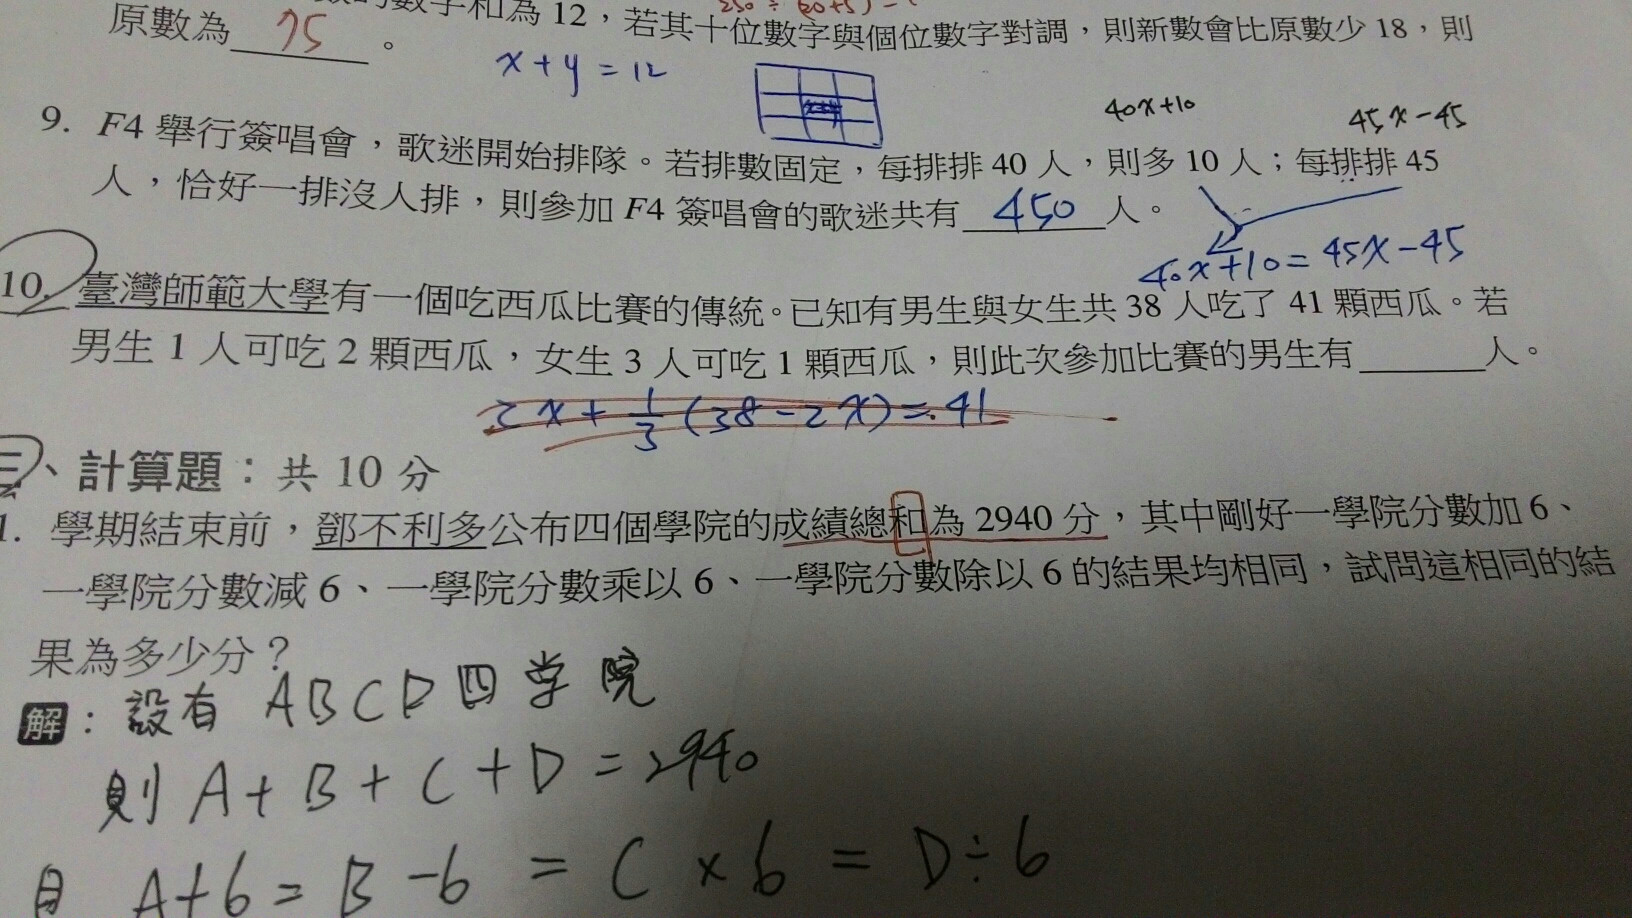 數字和為 12，若其十位數字與個位數字對調，則新數會比原數少 18，則
原數為 75 。
x + y = 12
40x+10
45x-45
9. F4 舉行簽唱會，歌迷開始排隊。若排數固定，每排排 40 人，則多 10 人；每排排 45
人，恰好一排沒人排，則參加 F4 簽唱會的歌迷共有 450 人。
40x+10=45x-45
10. 臺灣師範大學有一個吃西瓜比賽的傳統。已知有男生與女生共 38 人吃了 41 顆西瓜。若
男生 1 人可吃 2 顆西瓜，女生 3 人可吃 1 顆西瓜，則此次參加比賽的男生有______人。
2x+1/3(38-2x)=41
三、計算題：共 10 分
1. 學期結束前，鄧不利多公布四個學院的成績總和為 2940 分，其中剛好一學院分數加 6、
一學院分數減 6、一學院分數乘以 6、一學院分數除以 6 的結果均相同，試問這相同的結
果為多少分？
解：設有 ABCD 四学院
則 A+B+C+D=2940
且 A+6=B-6=C×6=D÷6